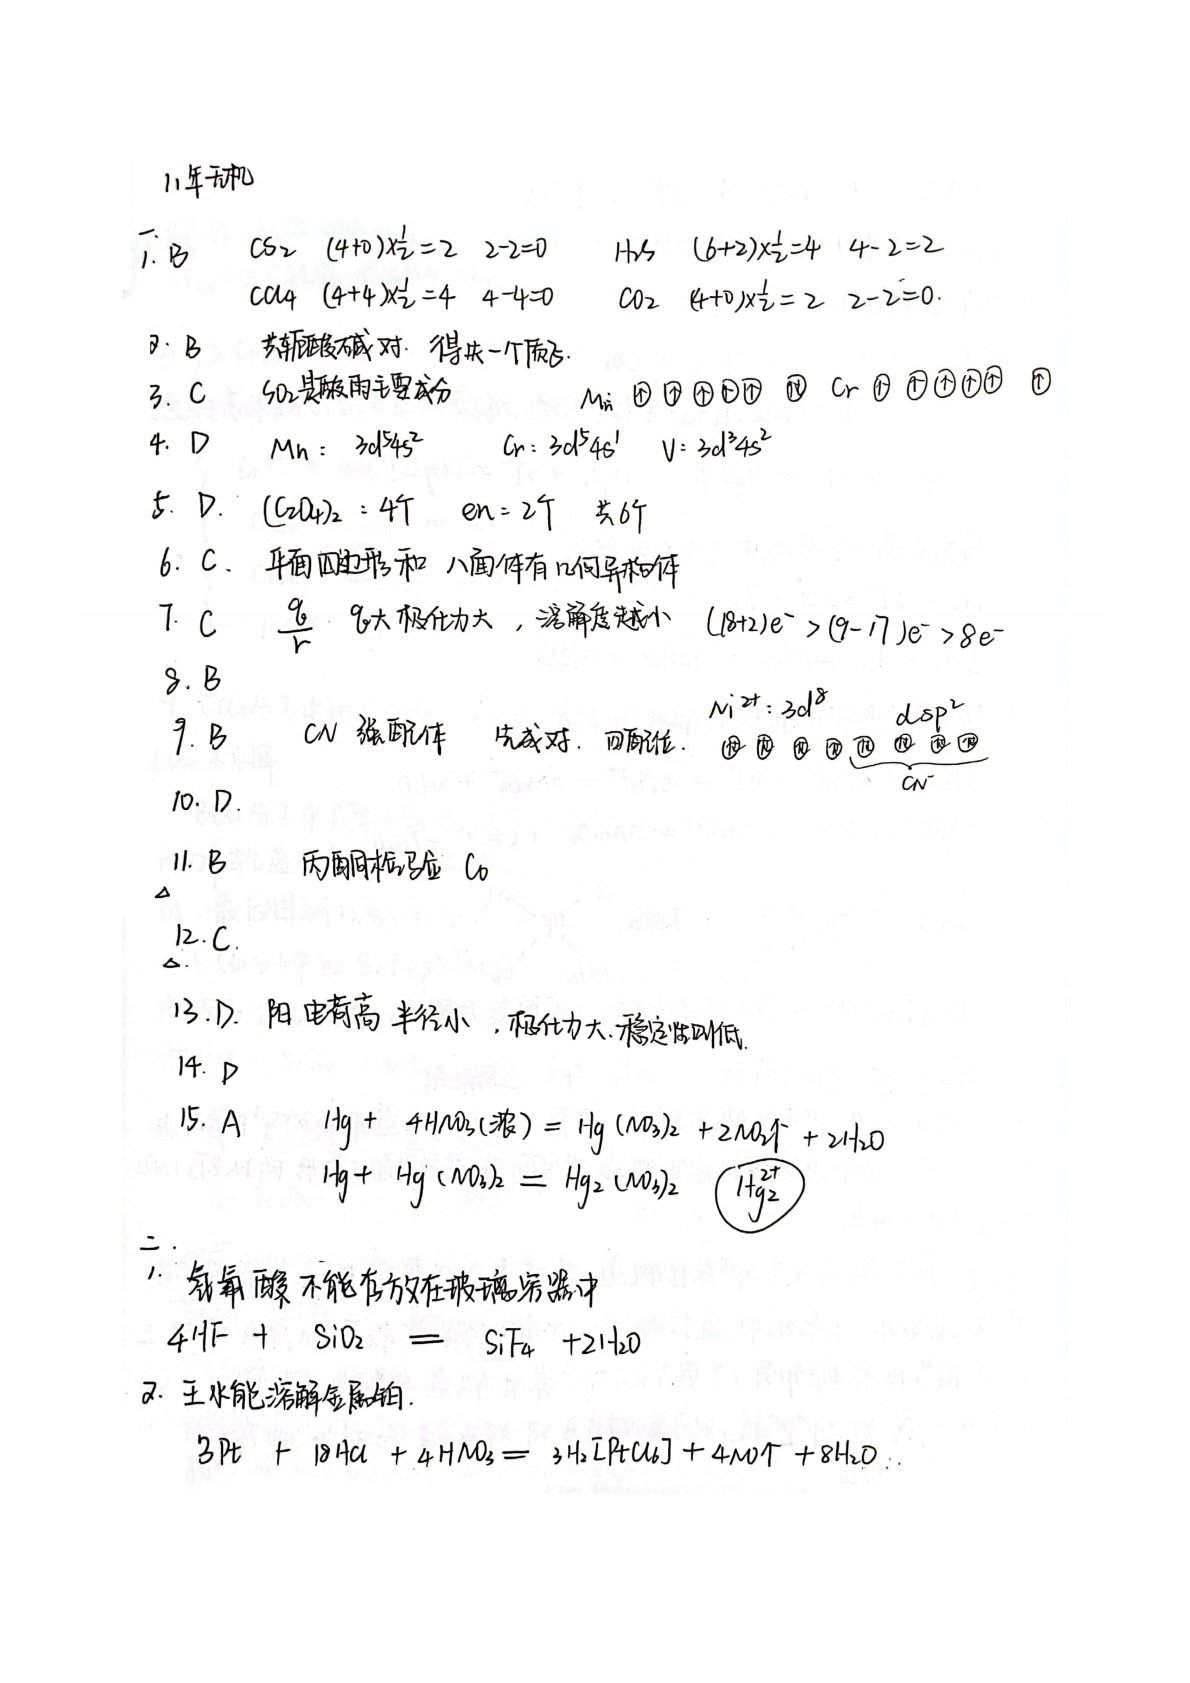 11年无机
一、
1. B CS2 (4+0)×1/2=2 2-2=0 H2S (6+2)×1/2=4 4-2=2
CCl4 (4+4)×1/2=4 4-4=0 CO2 (4+0)×1/2=2 2-2=0.
2. B 共轭酸碱对. 得失一个质子.
3. C SO2是酸雨主要成分 Mn ↑ ↑ ↑ ↑ ↑ ↑↓ Cr ↑ ↑ ↑ ↑ ↑ ↑
4. D Mn: 3d⁵4s² Cr: 3d⁵4s¹ V: 3d³4s²
5. D. (C2O4)2: 4个 en=2个 共6个
6. C. 平面四边形和 八面体有几何异构体
7. C q/r q大极化力大, 溶解度越小 (18+2)e⁻ > (9-17)e⁻ > 8e⁻
8. B
Ni²⁺: 3d⁸ dsp²
9. B CN 强配体 先成对. 四配位. ↑↓ ↑↓ ↑↓ ↑↓ ↑↓ ↑↓ ↑↓ ↑↓
CN⁻
10. D.
11. B 丙酮检验 Co
△
12. C.
△.
13. D. 阳电荷高 半径小, 极化力大. 稳定性则低.
14. D
15. A Hg + 4HNO3(浓) = Hg(NO3)2 + 2NO2↑ + 2H2O
Hg + Hg(NO3)2 = Hg2(NO3)2 Hg2²⁺
二.
1. 氢氟酸不能存放在玻璃容器中
4HF + SiO2 = SiF4 + 2H2O
2. 王水能溶解金属铂.
3Pt + 18HCl + 4HNO3 = 3H2[PtCl6] + 4NO↑ + 8H2O